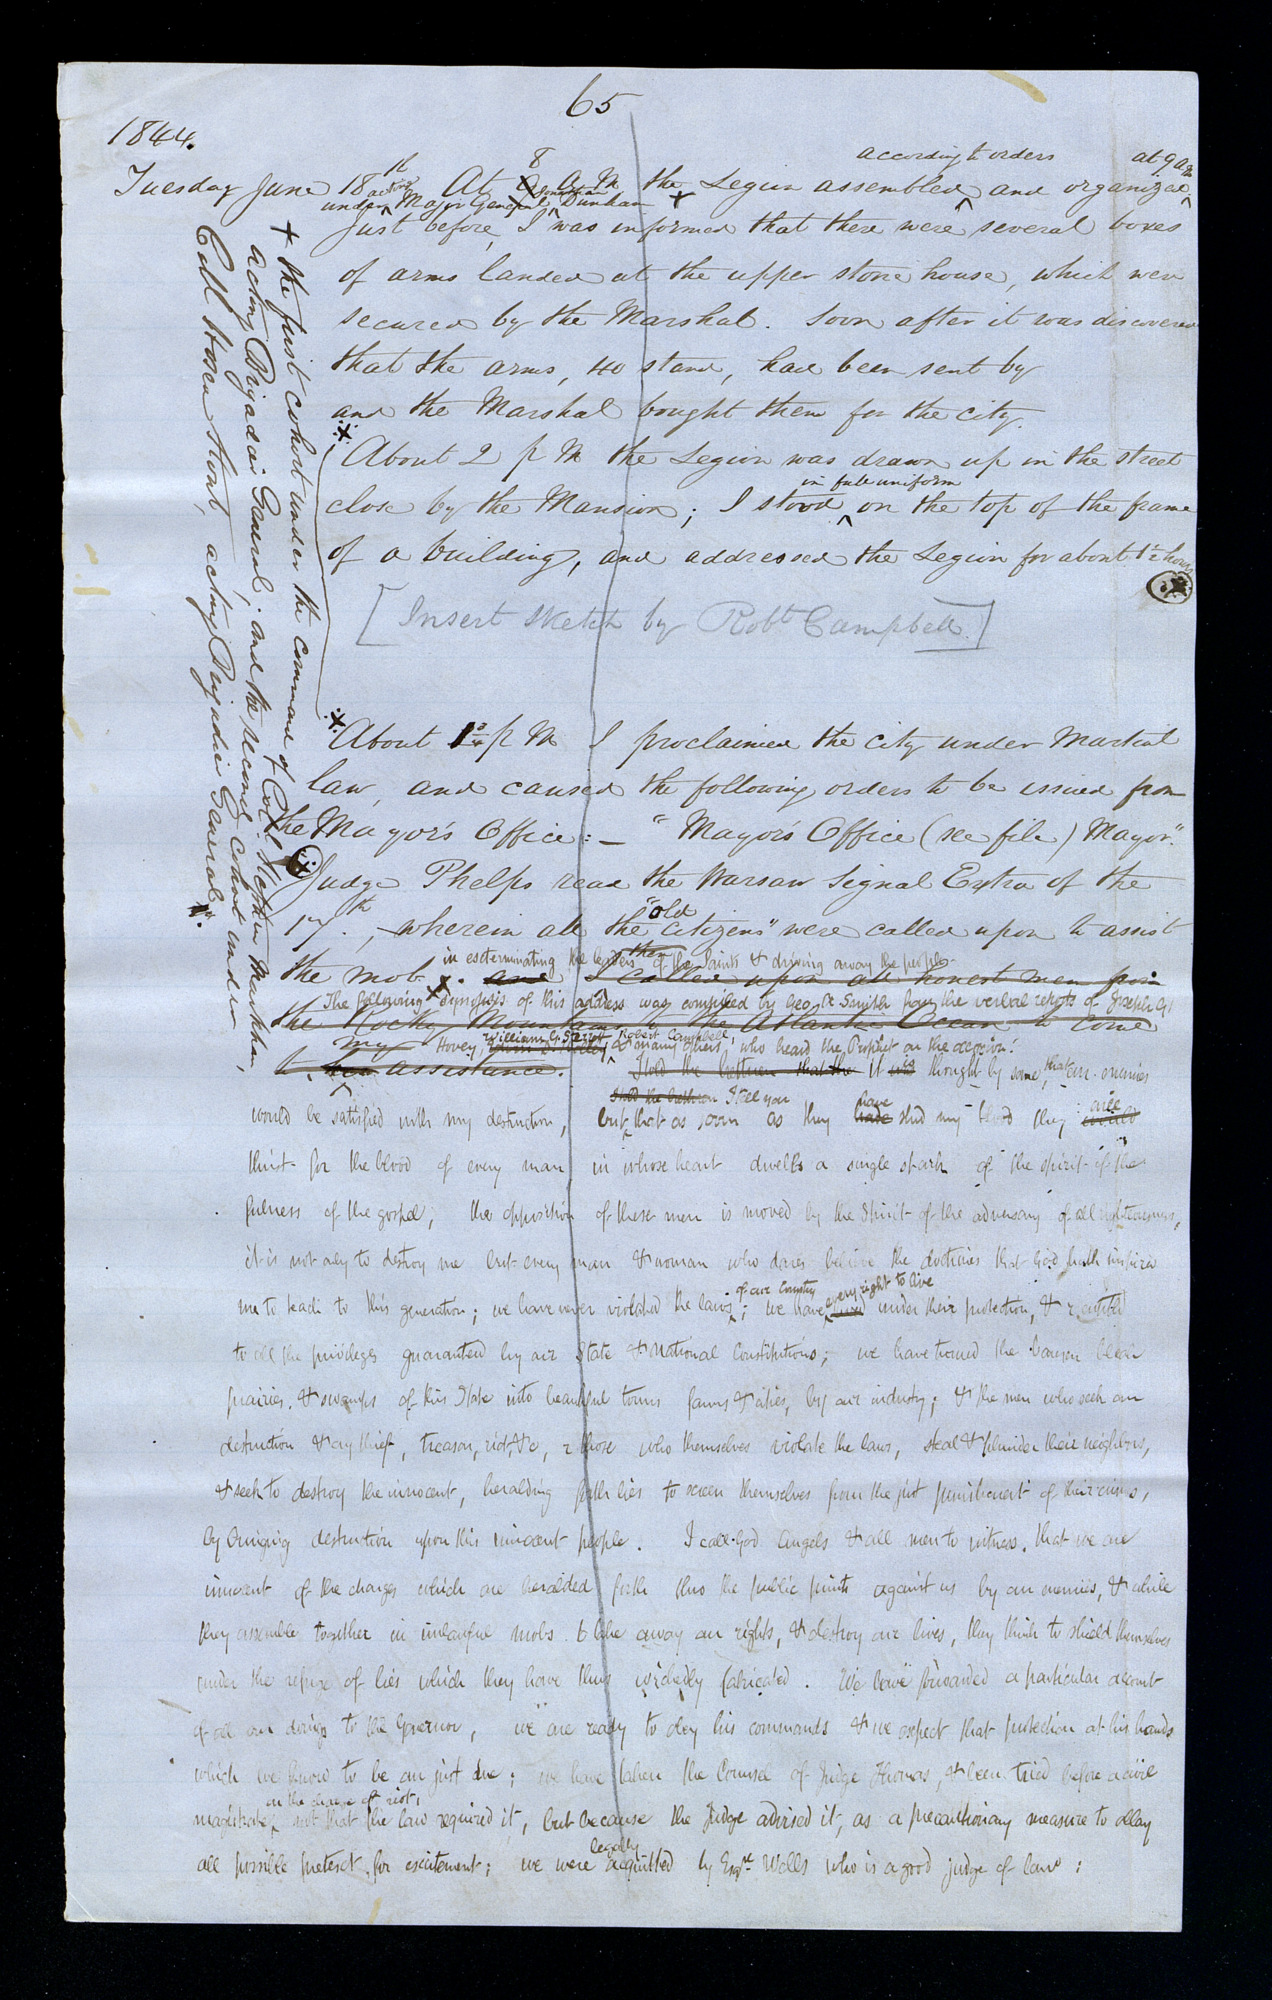 65
1844.
according to orders at 9 a.m
Tuesday June 18th At 8 A M the Legion assembled and organized
under acting Major General Jonathan Dunham
Just before, I was informed that there were several boxes
of arms landed at the upper stone house, which were
secured by the Marshal. Soon after it was discovered
that the arms, 40 stand, had been sent by
and the Marshal bought them for the city.
About 2 p M the Legion was drawn up in the street
in full uniform
close by the Mansion; I stood on the top of the frame
of a building, and addressed the Legion for about 1½ hours
[Insert sketch by Robt Campbell.]
About 1¾ p M I proclaimed the city under Martial
law, and caused the following orders to be issued from
the Mayor's Office:— "Mayor's Office (see file) Mayor."
Judge Phelps read the Warsaw Signal Extra of the
17th, wherein all the "old citizens" were called upon to assist
in exterminating the leaders of the Saints & driving away the people.
the mob. and then I called upon all honest men from
The following synopsis of this address was compiled by Geo. A Smith from the verbal reports of Joseph G.
the Rocky Mountains to the Atlantic Ocean to come
Hovey, William G. Sterrett, Robert Campbell, & many others, who heard the Prophet on the occasion:
to my assistance. I told the brethren that the It was thought by some, that our enemies
I told the brethren I tell you
would be satisfied with my destruction, but that as soon as they had have shed my blood they would will
thirst for the blood of every man in whose heart dwells a single spark of the spirit of the
fulness of the gospel; the opposition of these men is moved by the Spirit of the adversary of all righteousness,
it is not only to destroy me but every man & woman who dares believe the doctrines that God hath inspired
of our Country every right to live
me to teach to this generation; we have never violated the laws; we have lived under their protection, & r entitled
to all the privileges guaranteed by our State & National Constitutions; we have turned the barren bleak
prairies, & swamps of this State into beautiful towns farms & cities, by our industry; & the men who seek our
destruction & cry thief, treason, riot, &c, r those who themselves violate the laws, steal & plunder their neighbors,
& seek to destroy the innocent, heralding forth lies to screen themselves from the just punishment of their crimes,
by bringing destruction upon this innocent people. I call God Angels & all men to witness, that we are
innocent of the charges which are heralded forth thro the public prints against us by our enemies, & while
they assemble together in unlawful mobs to take away our rights, & destroy our lives, they think to shield themselves
under the refuge of lies which they have thus wickedly fabricated. We have forwarded a particular account
of all our doings to the Governor, we are ready to obey his commands & we expect that protection at his hands
which we know to be our just due; we have taken the Counsel of Judge Thomas, & been tried before a civil
on the charge of riot,
magistrate, not that the law required it, but because the Judge advised it, as a precautionary measure to allay
all possible pretext for excitement; we were legally acquitted by Esqre. Wells who is a good judge of law;
the first cohort under the command of Col. Stephen Markham,
acting Brigadier General; and the second cohort under
Coll Hosea Stout, acting Brigadier General.